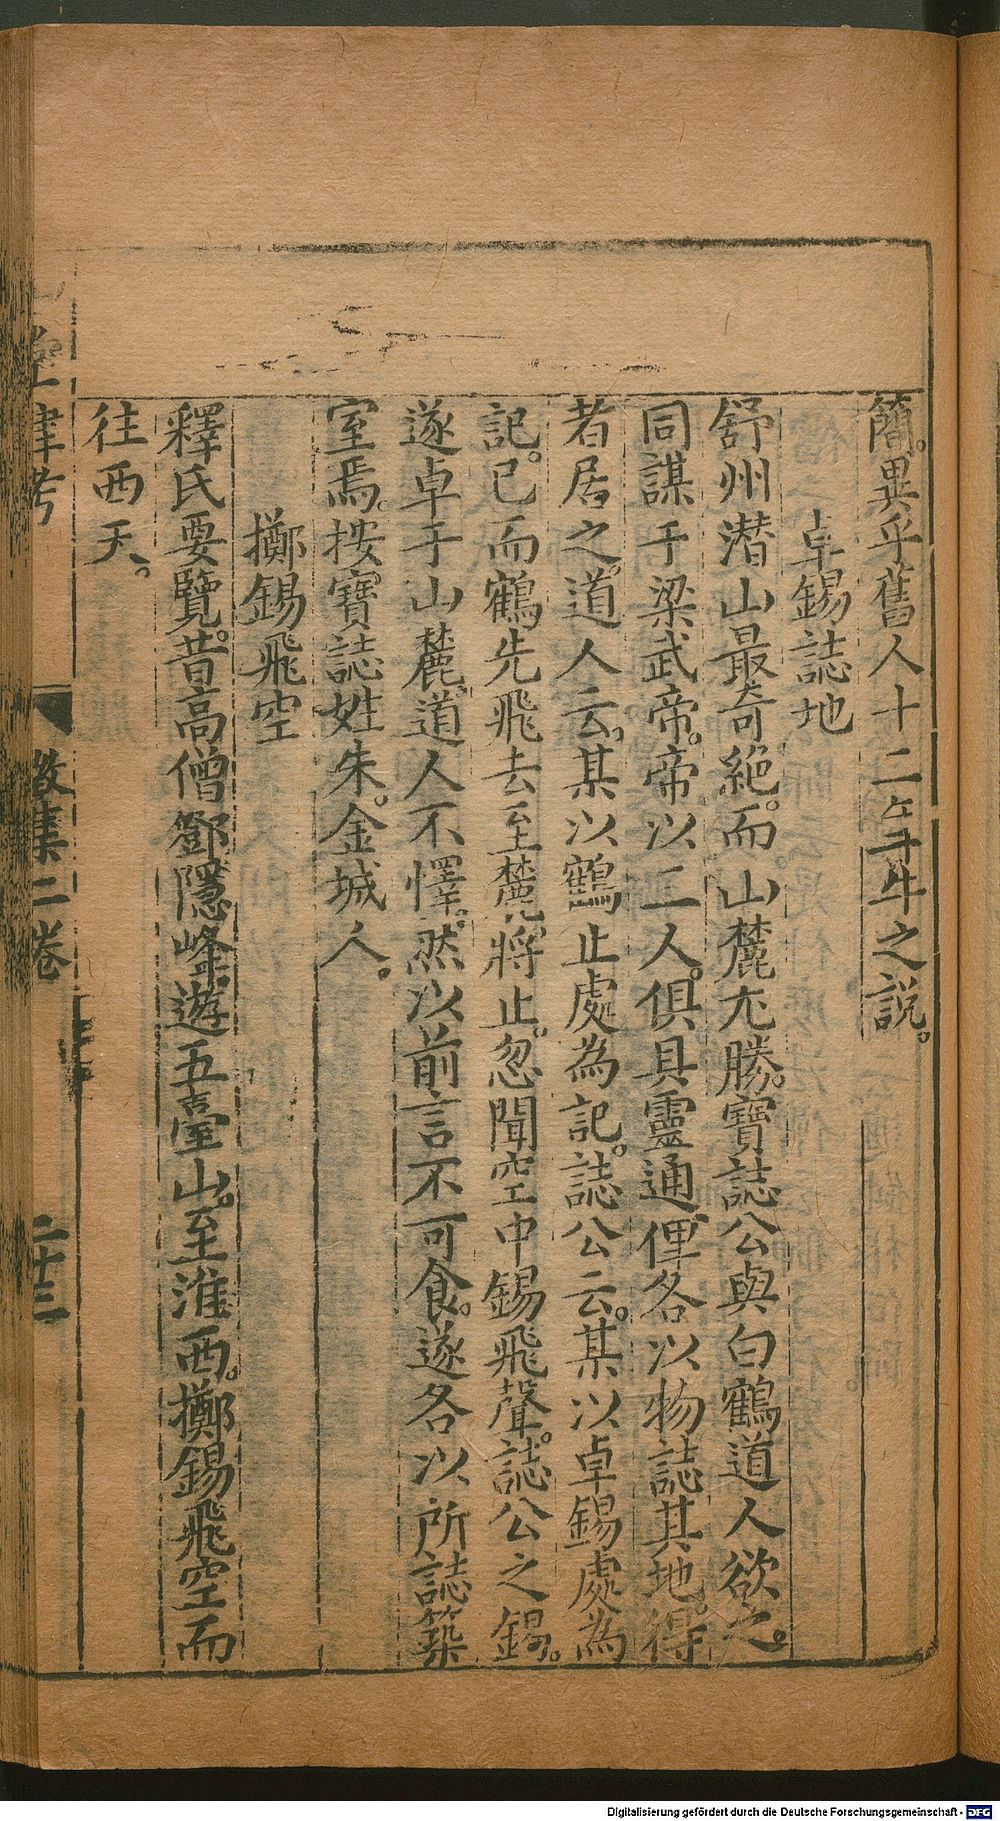 簡。異乎舊人十二年之說。
卓錫誌地
舒州潛山最奇絕。而山麓尤勝。寶誌公與白鶴道人欲之。
同謀于梁武帝。帝以二人。俱具靈通。俾各以物誌其地。得
者居之。道人云。某以鶴止處為記。誌公云。某以卓錫處為
記。已而鶴先飛去至麓。將止。忽聞空中錫飛聲。誌公之錫。
遂卓于山麓。道人不懌。然以前言不可食。遂各以所誌築
室焉。按寶誌姓朱。金城人。
擲錫飛空
釋氏要覽。昔高僧鄧隱峰遊五臺山。至淮西。擲錫飛空而
往西天。
堂肆考
徵集二卷
二十三
Digitalisierung gefördert durch die Deutsche Forschungsgemeinschaft - DFG